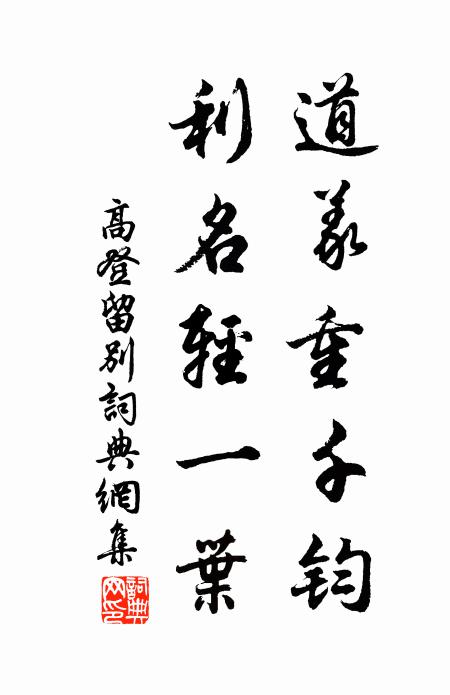 道義重千鈞
利名輕一葉
高登留別詞典網集
詞典網印